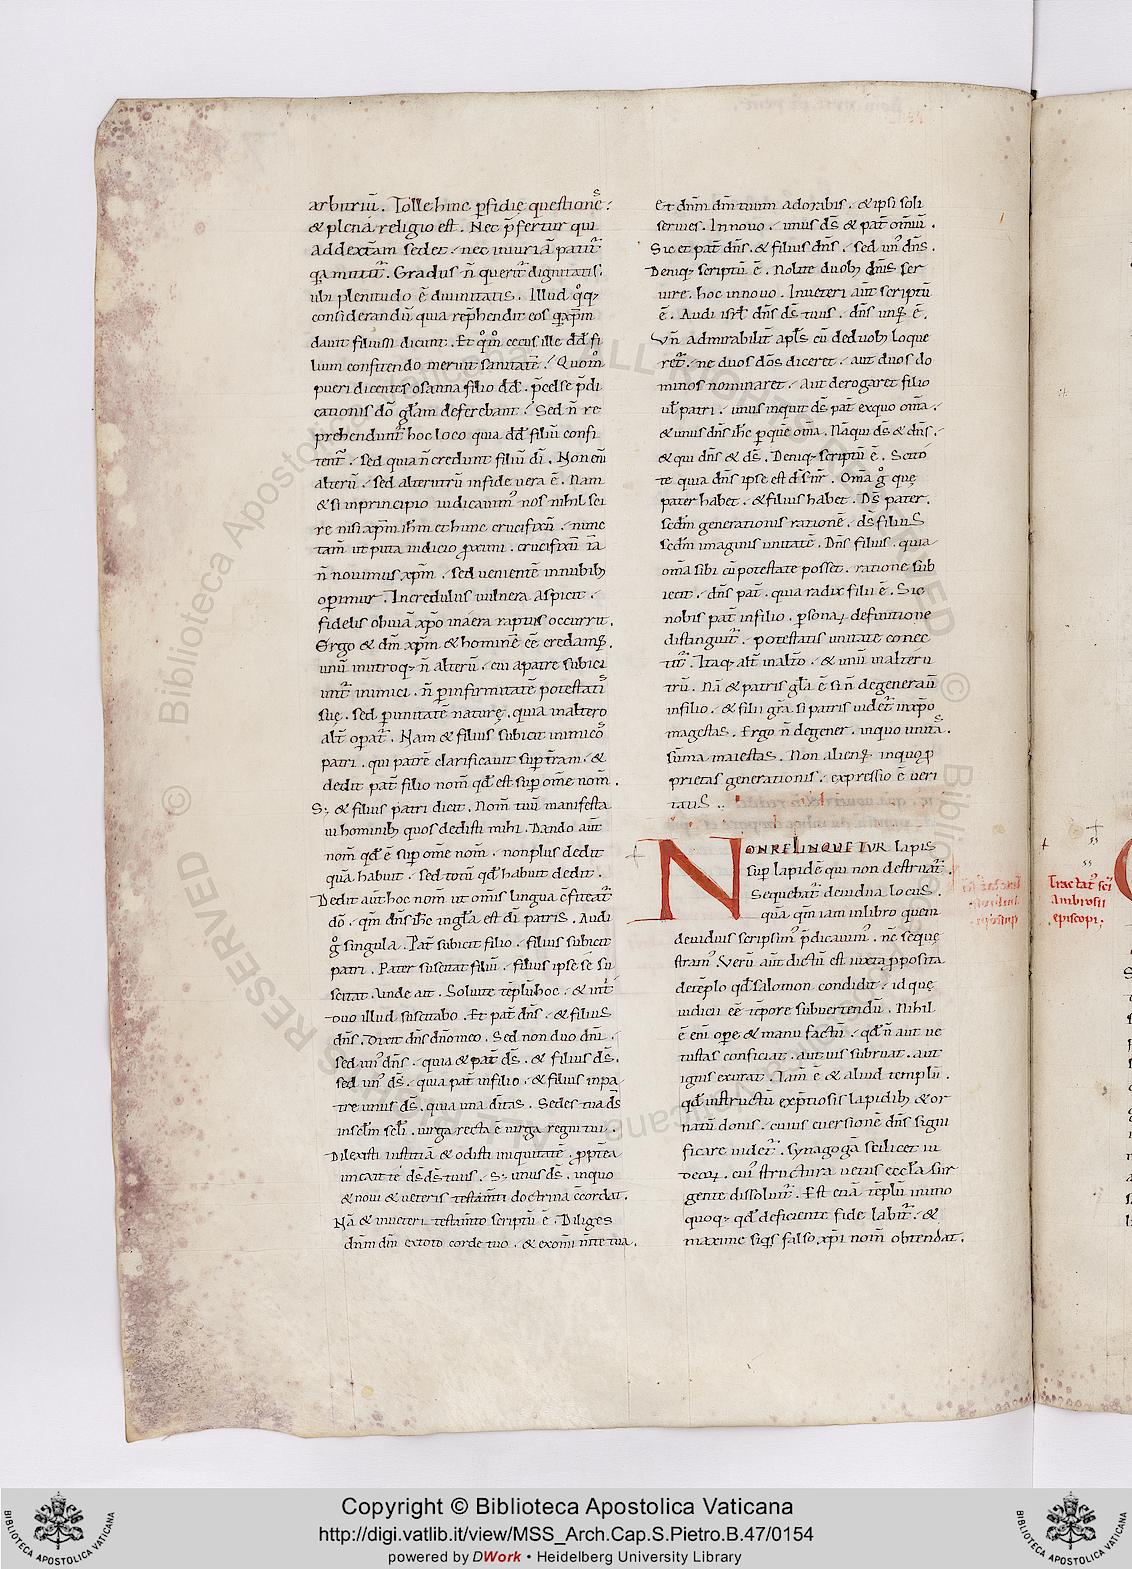 arburiũ. Tolle hinc p̱fidię questionẽs:
& plena religio est. Nec p̄fertur qui
addextãm sedet: nec iniuriã patit̃
q̃ mittit̃. Gradus ñ querit̃ dignitatis.
ubi plenitudo ẽ diuinitatis. Illud q̊q;
considerandũ quia rep̃hendit eos q̃ xp̃m
dauit filium dicunt. Et q̊m̊ cecus ille dd̃ fi
lium confitendo meruit sanitatẽ? Quom̊
pueri dicentes osanna filio dd̃. p̃celse p̃di
cationis dõ gl̃am deferebant? Sed ñ re
prehendunt̃ hoc loco quia dd̃ filiũ confi
tent̃: sed quia ñ credunt filiũ dĩ. Non eni
alterũ: sed alterutrũ in fide uera ẽ. Nam
& si inprincipio iudicauim᾽ nos nihil sci
re nisi xp̃m ih̃m et hunc crucifixũ: nunc
tam̃ ut puta iudicio proximi. crucifixũ iã
ñ nouimus xp̃m. sed uenientẽ in nubib;
operimur. Incredulus uulnera aspicit.
fidelis obuiã xp̃o inaera raptus occurrit.
Ergo & dm̃ xp̃m & hominẽ eẽ credam᾽.
unũ in utroq; ñ alterũ: cui a patre subici
unt̃ inimici. ñ p̱ infirmitatẽ potestatis
suę. sed p̱ unitatẽ naturę. quia in altero
alt̃ operat̃. Nam & filius subicit inimicos
patri. qui patrẽ clarificauit sup̱ t̃ram: &
dedit pat̃ filio nom̃ qd̃ est sup̱ om̃e nom̃.
S; & filius patri dicit. Nom̃ tuũ manifesta
ui hominib; quos dedisti mihi. Dando aut̃
nom̃ qd̃ ẽ sup̱ om̃e nom̃. non plus dedit
quã habuit: sed totũ qd̃ habuit dedit.
Dedit aut̃ hoc nom̃ ut om̃is lingua c̃fiteat̃
dõ. qm̃ dñs ih̃c in gl̃a est dĩ patris. Audi
g̊ singula. Pat̃ subicit filio. filius subicit
patri. Pater suscitat filiũ: filius ipse sẽ su
scitat. Unde ait. Soluite tẽplũ hoc: & int̃
duo illud suscitabo. Et pat̃ dñs: & filius
dñs. Dixit dñs dño meo. Sed non duo dñi.
sed un᾽ dñs: quia & pat̃ ds̃. & filius ds̃.
sed un᾽ ds̃. quia pat̃ in filio: & filius in pa
tre unus ds̃. quia una ditas. Sedes tua ds̃
in sclm̃ scl̃i. uirga recta ẽ uirga regni tui.
Dilexisti iustitiã & odisti iniquitatẽ. propt̃ea
unxit te ds̃ ds̃ tuus. S; unus ds̃. in quo
& noui & ueteris testam̃ti doctrina c̃cordat.
Nã & in ueteri testam̃to scriptũ ẽ. Diliges
dñm dm̃ ex toto corde tuo. & ex om̃i m̃te tua.
Et dñm dm̃ tuum adorabis. & ipsi soli
seruies. In nouo: unus ds̃ & pat̃ om̃iũ.
Sic et pat̃ dñs. & filius dñs: sed un᾽ dñs.
Deniq; scriptũ ẽ. Nolite duob; dñis ser
uire. hoc in nouo. In ueteri aut̃ scriptũ
ẽ. Audi isrl̃ dñs ds̃ tuus. dñs unus ẽ.
Vñ admirabilit̃ apl̃s cũ de duob; loque
ret̃: ne duos dõs diceret: aut duos do
minos nominaret: aut derogaret filio
ul̃ patri: unus inquit ds̃ pat̃ ex quo om̃a:
& unus dñs ih̃c p̱ que om̃a. Nã qui ds̃ & dñs:
& qui dñs & ds̃. Deniq; scriptũ ẽ. Scito
te quia dñs ipse est ds̃ nr̃. Om̃a g̊ quę
pater habet: & filius habet. Ds̃ pater.
scdm̃ generationis rationẽ. ds̃ filius
scdm̃ imaginis unitatẽ. Dñs filius. quia
om̃a sibi cũ potestate posset. ratione sub
iecit: dñs pat̃. quia radix filii ẽ. Sic
nobis pat̃ in filio. p̱sonarum definitione
distinguit̃: potestatis unitate conec
tit̃. Itaq; alt̃ in alt̃o: & unũ in alterũ
trũ. Nã & patris gl̃a ẽ si ñ degenerauit
in filio. & filii gr̃a si patris uidet̃ in xp̃o
magestas. Ergo ñ degener. in quo unita.
sũma maiestas. Non alienus in quo pro
prietas generationis: expressio ẽ ueri
tatis.
NON RELINQUETUR lapis
sup̱ lapidẽ qui non destruat̃.
Sequebat̃ deuidua locus.
quã qm̃ iam in libro quem
deuiduis scripsim᾽ p̃dicauim᾽. ñc seque
stram᾽. Verũ aut̃ dictũ est iuxta proposita
detẽplo qd̃ salomon condidit: id que
iudicii eẽ tẽpore subuertendũ. Nihil
ẽ eni ope̱ & manu factũ: qd̃ ñ aut ue
tustas conficiat. aut uis subruat. aut
ignis exurat. Tam̃ ẽ & aliud templũ.
qd̃ instructũ exp̃tiosis lapidib; & or
natũ donis: cuius euersionẽ dñs signi
ficare uidet̃. synagogã scilicet iu
deorum. cui᾽ structura uetus eccl̃a sur
gente dissoluit̃. Est etiã tẽplũ in uno
quoq; qd̃ deficiente fide labit̃: &
maxime siq̃s falso xp̃i nom̃ obtendat.
Tractat᾽ sc̃i
ambrosii
episcopi;
Copyright © Biblioteca Apostolica Vaticana
http://digi.vatlib.it/view/MSS_Arch.Cap.S.Pietro.B.47/0154
powered by DWork • Heidelberg University Library
BIBLIOTECA APOSTOLICA VATICANA
BIBLIOTECA APOSTOLICA VATICANA
© Biblioteca Apostolica Vaticana ALL RIGHTS RESERVED